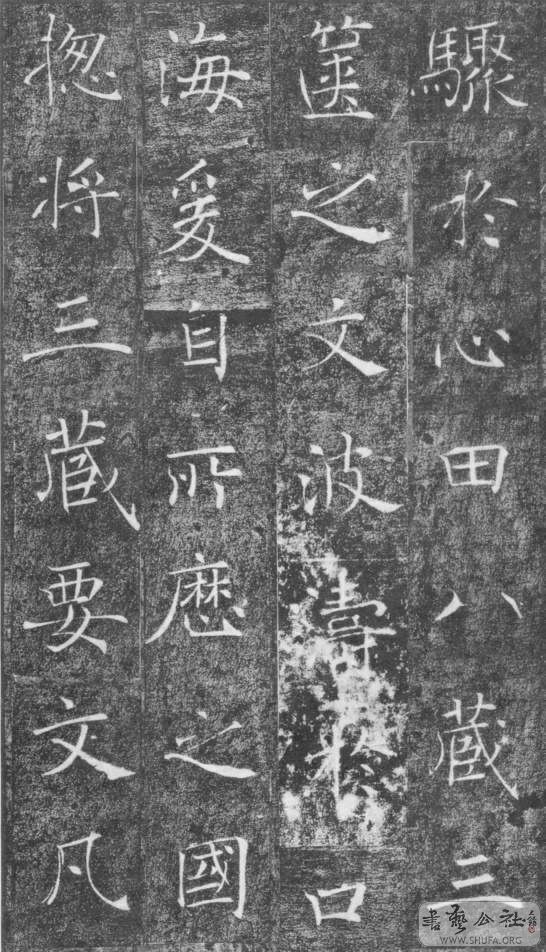 驟於心田八藏三
篋之文波濤於口
海爰自所歷之國
揔將三藏要文凡
書藝公社
WWW.SHUFA.ORG